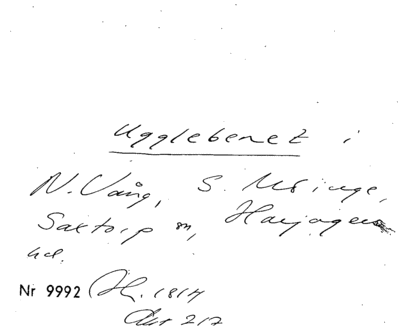 Ugglebenet i
N. Vång, S. Möinge,
Saxtorp sn, Harjagers
hd.
Nr 9992 Jh. 1814
Akt 217